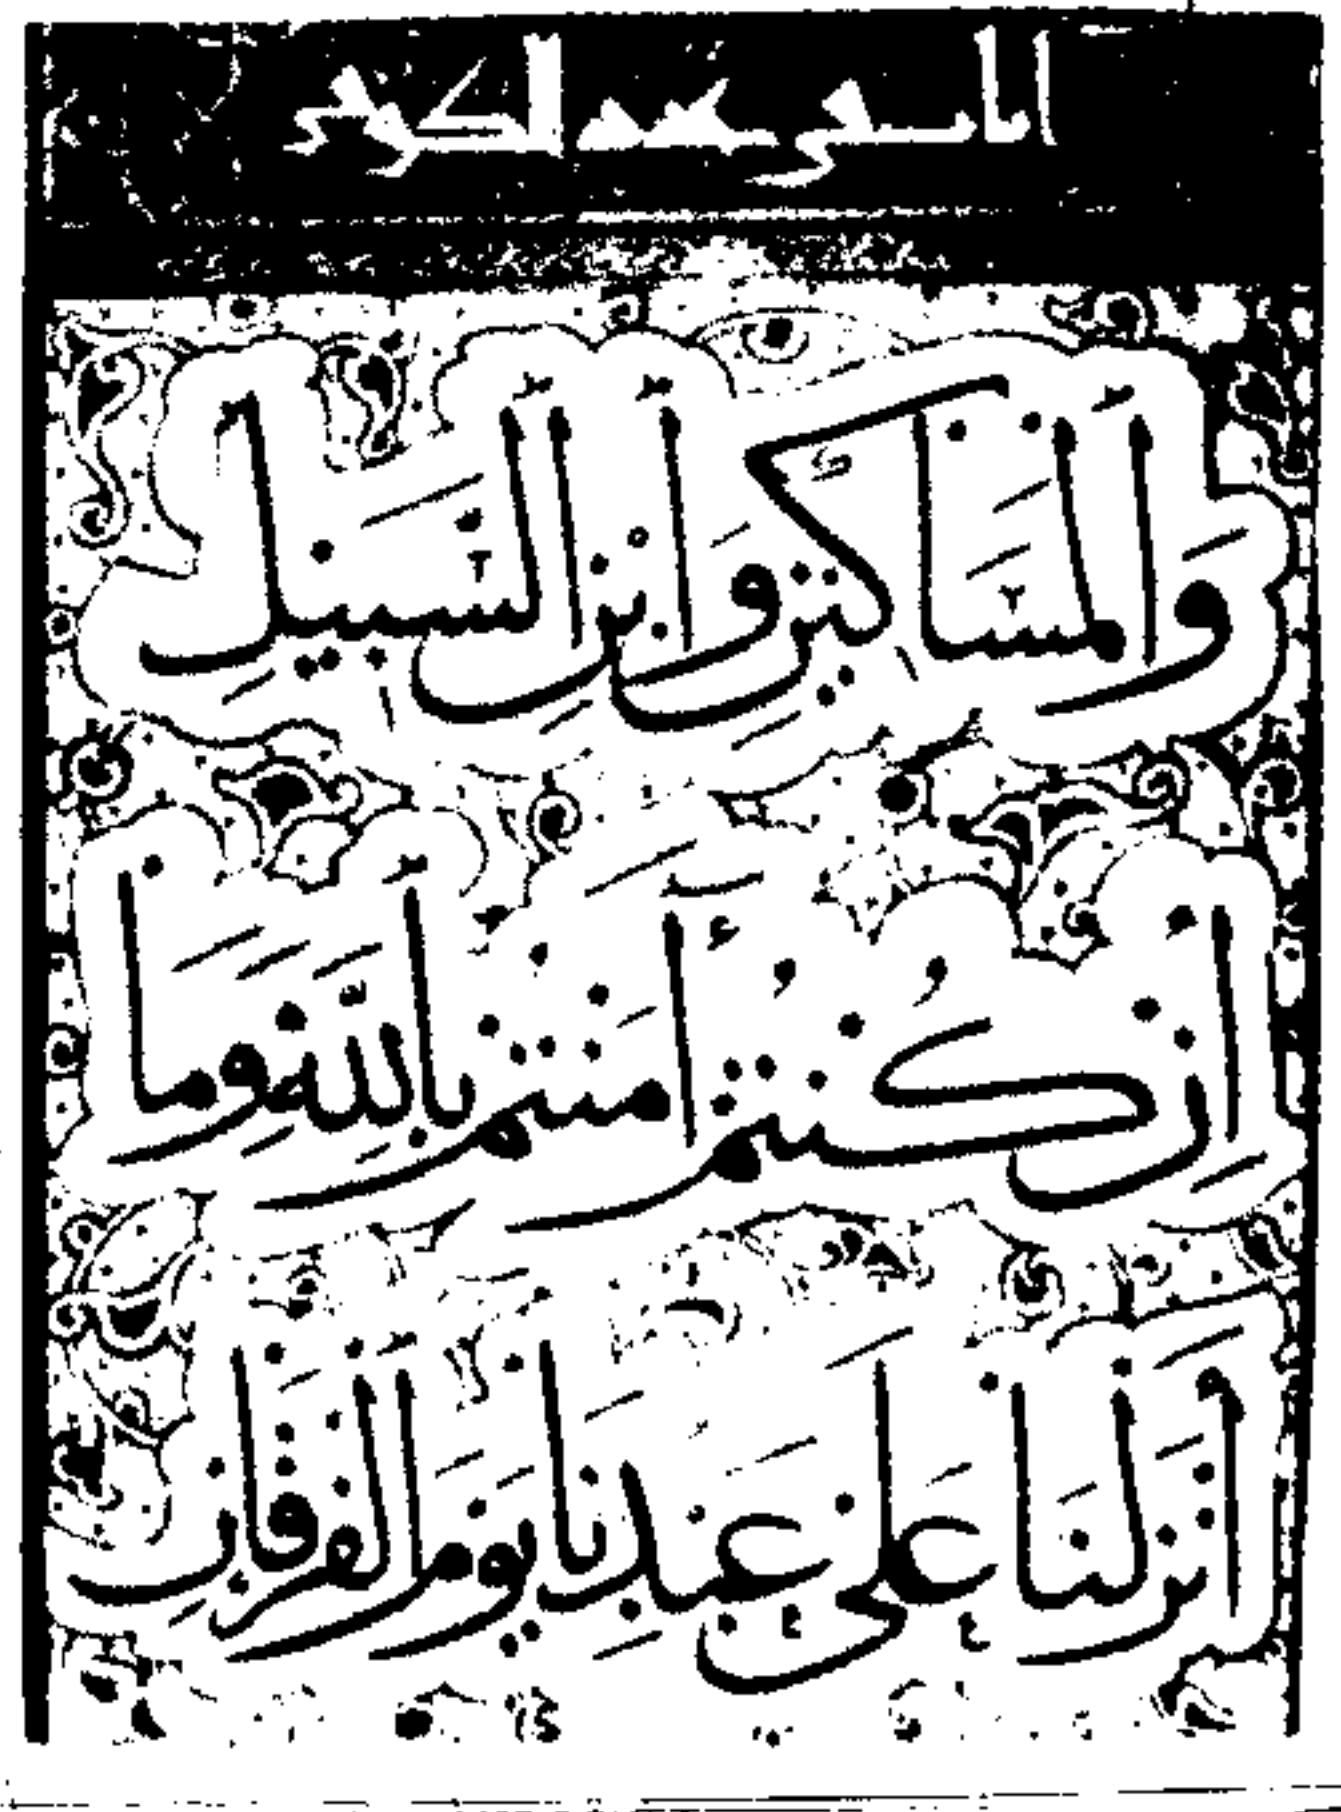 الكوفي
وَالْمَسَاكِينِ وَابْنِ السَّبِيلِ
إِنْ كُنْتُمْ آمَنْتُمْ بِاللَّهِ وَمَا
أَنْزَلْنَا عَلَى عَبْدِنَا يَوْمَ الْفُرْقَانِ